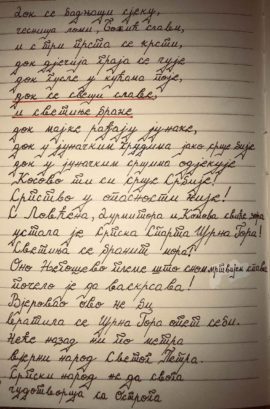 Док се бадњаци сјеку,
чесница ломи, Божић слави,
и с три прста се крсти,
док дјечија граја се чује
док гусле у кућама поје,
док се свеци славе,
и светиње бране
док мајке рађају јунаке,
док у јуначким грудима јако срце бије
док и јуначким срцима одјекује
Косово ти си срце Србије!
Српство у опасности није!
С Ловћена, Дурмитора и Комова свиће зора
устала је Српска Спарта Црна Гора!
Светиња се бранит мора!
Оно Његошево племе што сном мртвијем спава
почело је да васкрсава!
Вјероватно ово не би
вратила се Црна Гора опет себи.
Неће назад ни по метра
вјерни народ Светог Петра.
Српски народ не да свога
чудотворца са Острога